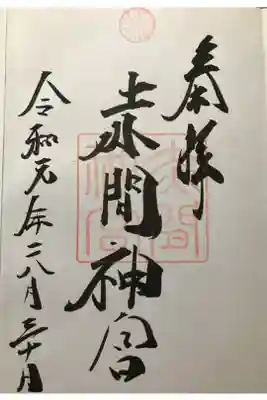 奉拝
赤間神宮
令和元年八月三十日